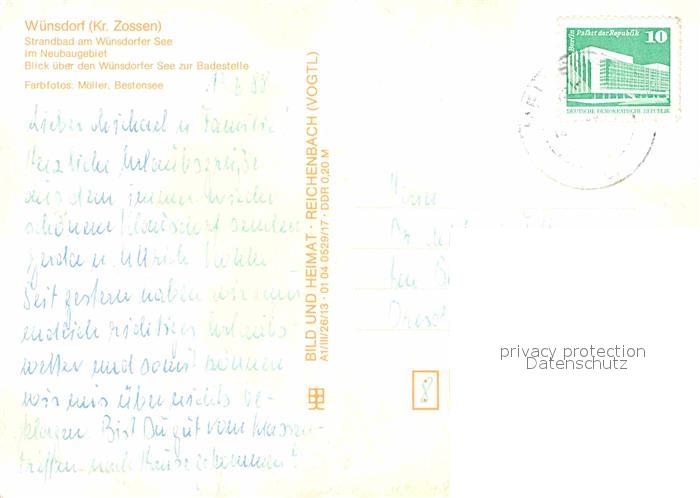 Wünsdorf (Kr. Zossen)
Strandbad am Wünsdorfer See
Im Neubaugebiet
Blick über den Wünsdorfer See zur Badestelle
Farbfotos: Möller, Bestensee
88
Lieber Michael u. Familie!
Herzliche Urlaubsgrüße
aus dem immer wieder
schönen senden
Gerda u. Ullrich
Seit gestern haben wir nun
endlich richtiges Urlaubs-
wetter und somit können
wir uns über nichts be-
klagen. Bist Du gut vom Klassen-
treffen nach Hause gekommen?
BILD UND HEIMAT · REICHENBACH (VOGTL)
A1/III/26/13 · 01 04 0529/17 · DDR 0,20 M
Berlin Palast der Republik
10
DEUTSCHE DEMOKRATISCHE REPUBLIK
Dresd
8
privacy protection
Datenschutz